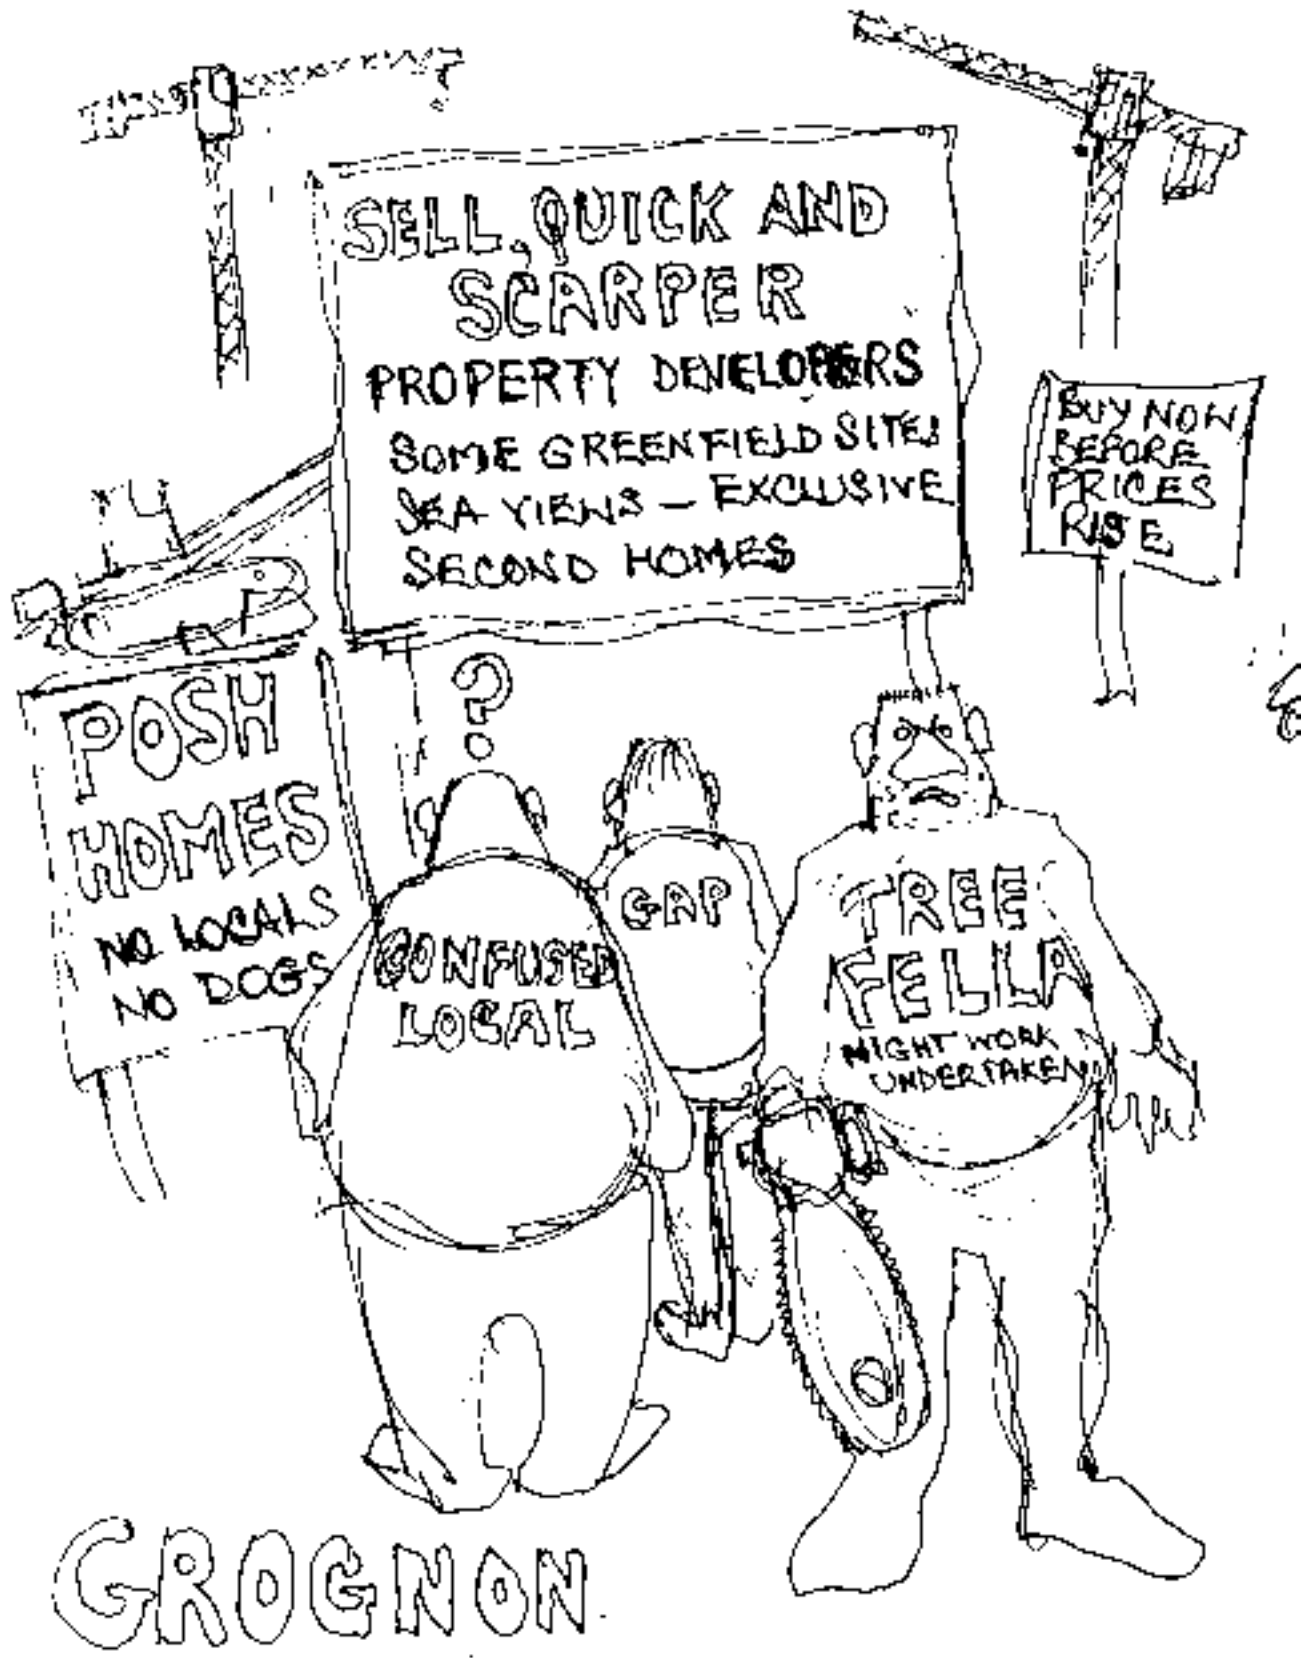 SELL, QUICK AND
SCARPER
PROPERTY DEVELOPERS
SOME GREENFIELD SITES
SEA VIEWS - EXCLUSIVE
SECOND HOMES
BUY NOW
BEFORE
PRICES
RISE
POSH
HOMES
NO LOCALS
NO DOGS
?
CONFUSED
LOCAL
GAP
TREE
FELLA
NIGHT WORK
UNDERTAKEN
GROGNON